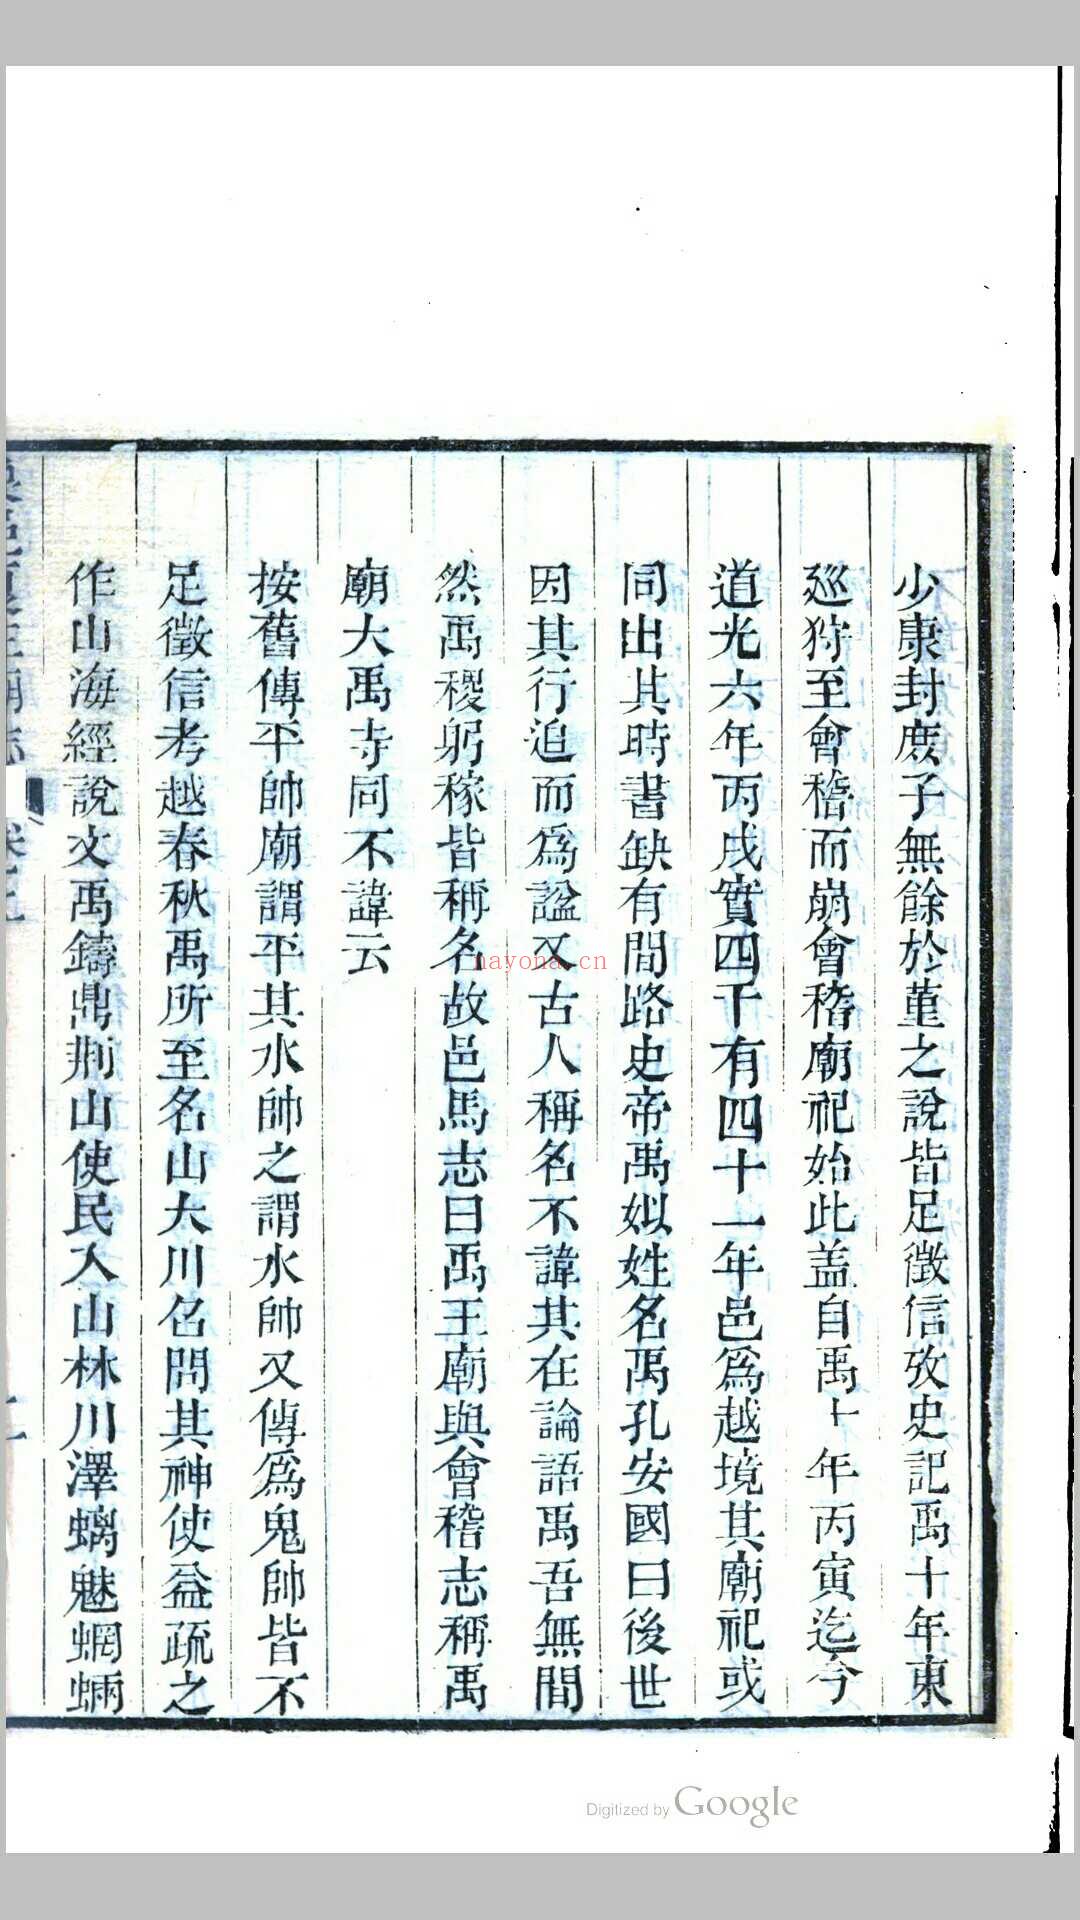 少康封庶子無餘於蓳之說皆足徵信攷史記禹十年東
巡狩至會稽而崩會稽廟祀始此盖自禹十年丙寅迄今
道光六年丙戌實四千有四十一年邑爲越境其廟祀或
同出其時書缺有間路史帝禹姒姓名禹孔安國曰後世
因其行追而爲諡又古人稱名不諱其在論語禹吾無間
然禹稷躬稼皆稱名故邑馬志曰禹王廟與會稽志稱禹
廟大禹寺同不諱云
按舊傳平帥廟謂平其水帥之謂水帥又傳爲鬼帥皆不
足徵信考越春秋禹所至名山大川召問其神使益疏之
作山海經說文禹鑄鼎荆山使民入山林川澤螭魅蝄蜽
nayona.cn
Digitized by Google